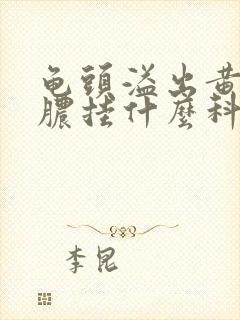 龟頭溢出黄
膿挂什麼科
李昆